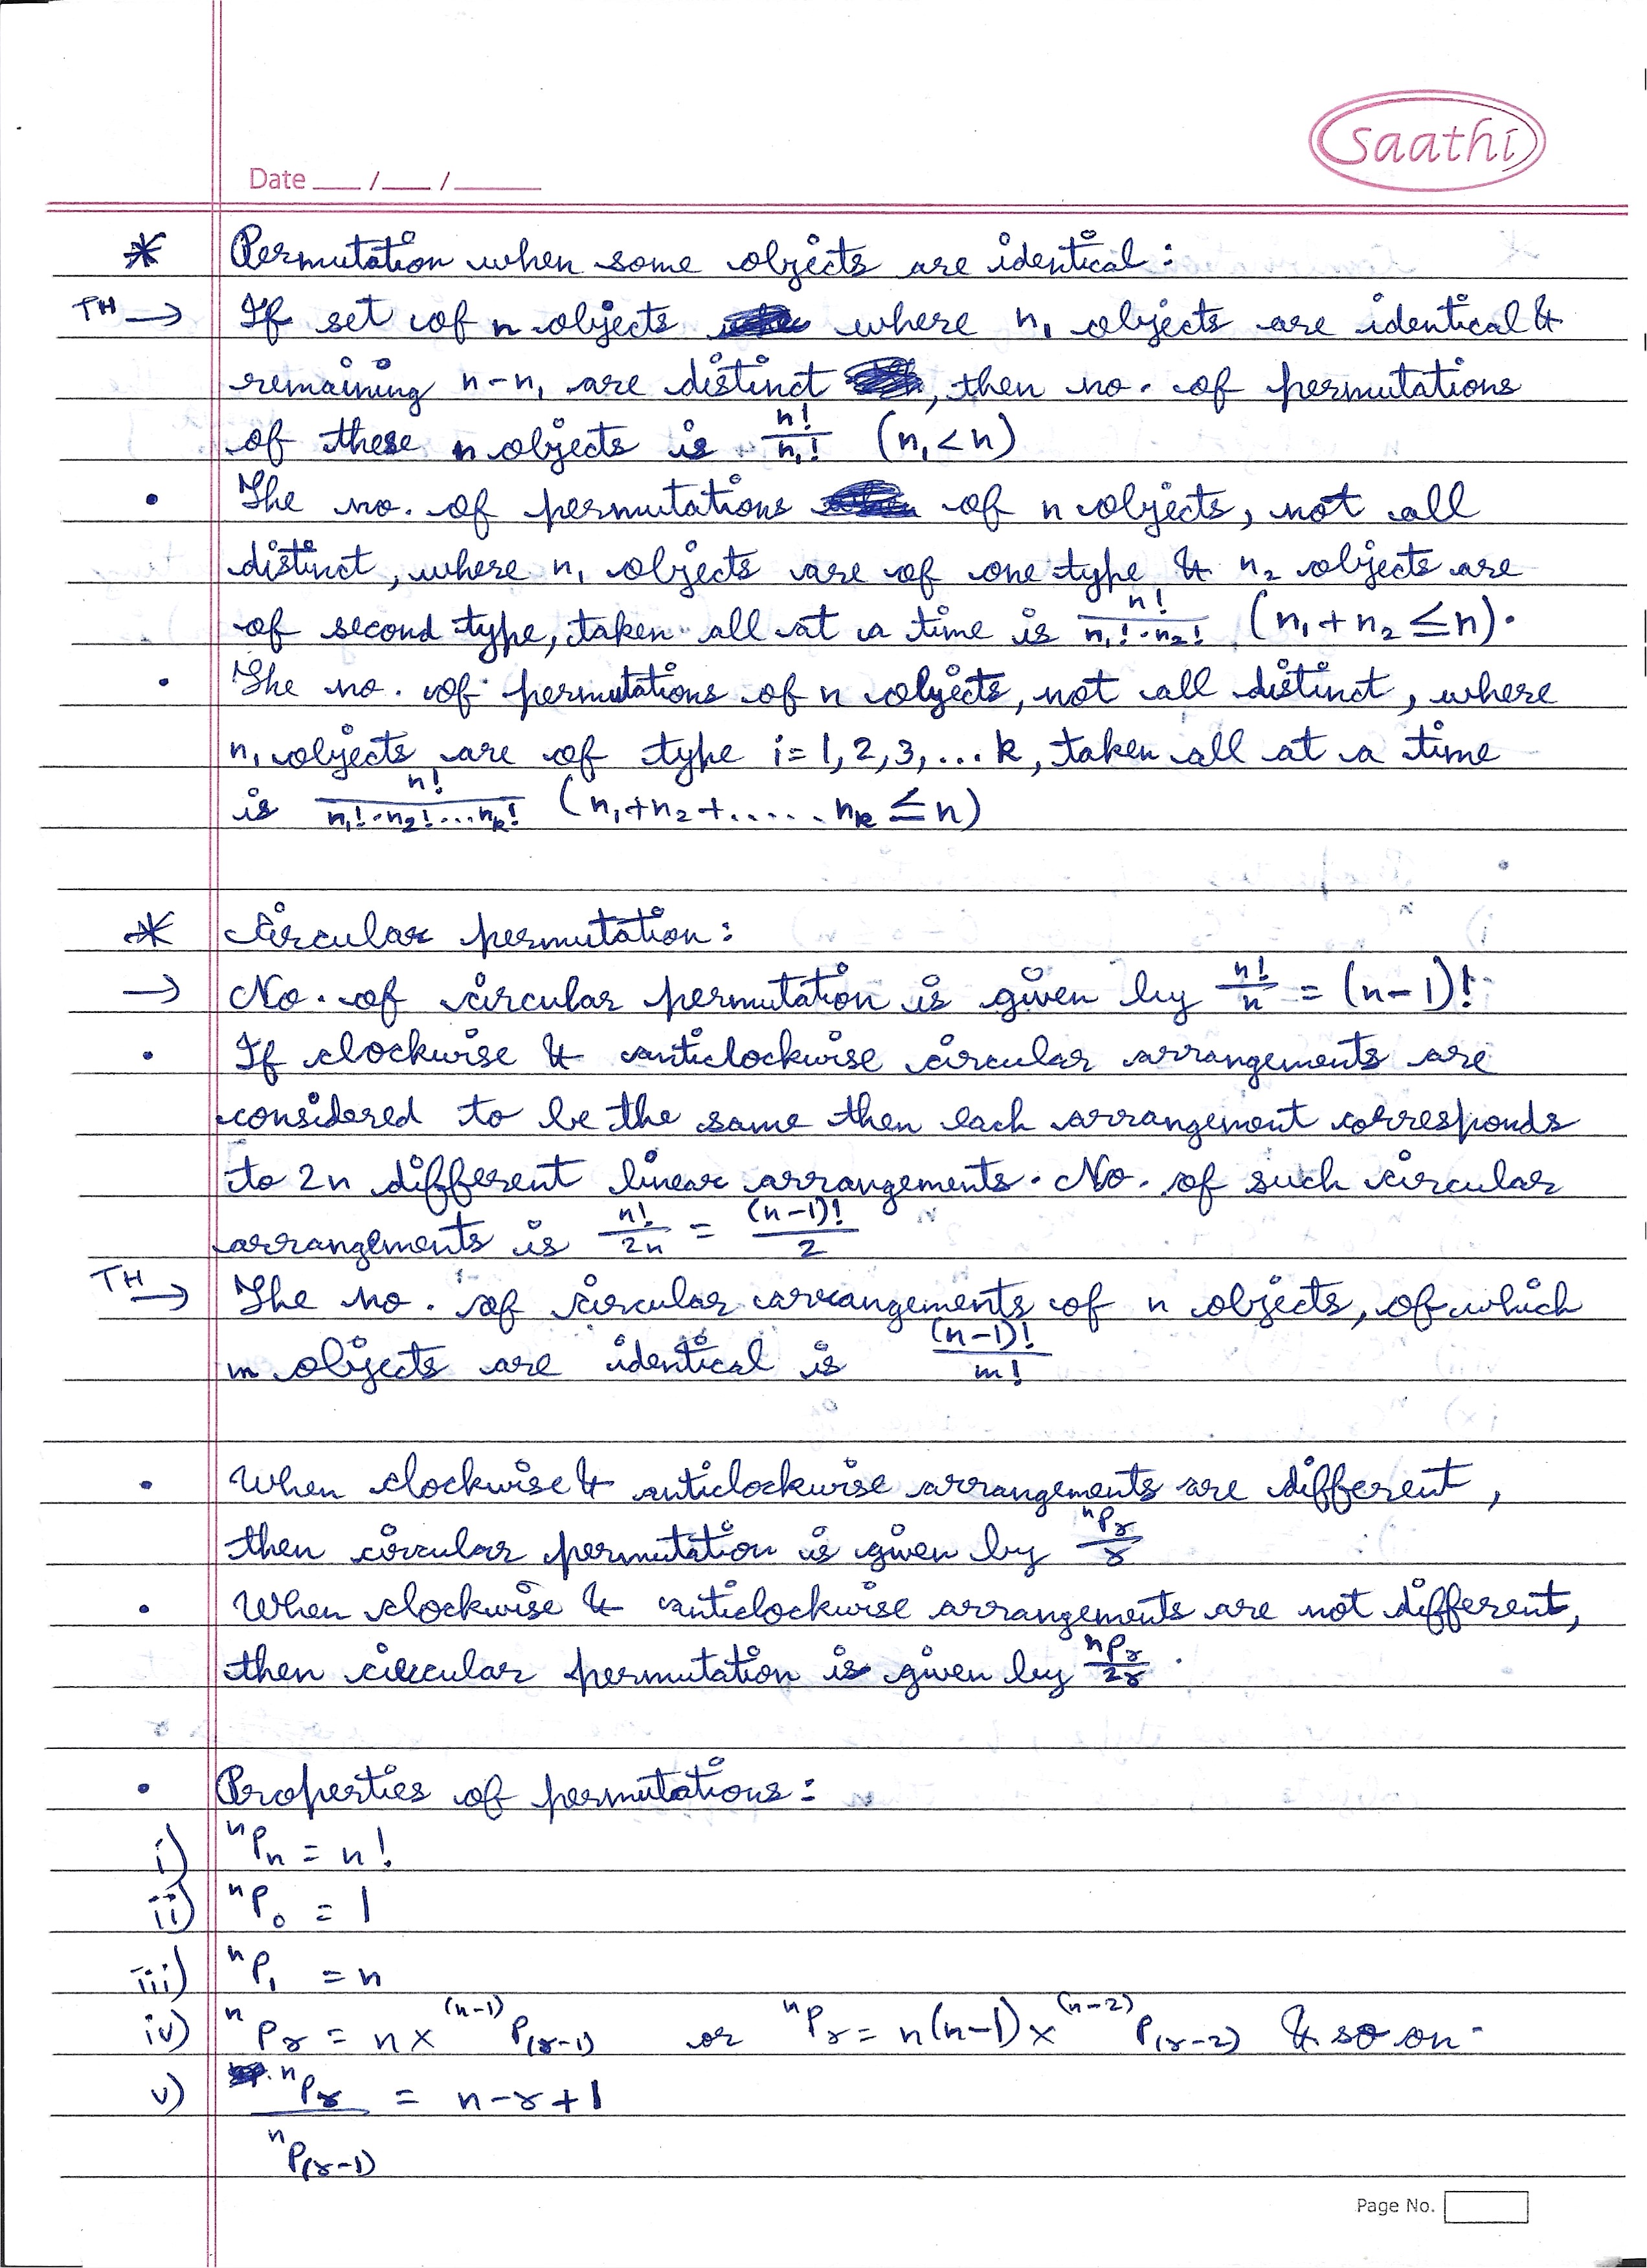 Saathi
Date ___ / ___ / ______
* Permutation when some objects are identical :
TH → If set of n objects where n₁ objects are identical &
remaining n-n₁ are distinct , then no. of permutations
of these n objects is n!/n₁! (n₁<n)
• The no. of permutations of n objects, not all
distinct, where n₁ objects are of one type & n₂ objects are
of second type, taken all at a time is n!/(n₁!·n₂!) (n₁+n₂≤n).
• The no. of permutations of n objects, not all distinct, where
n₁ objects are of type i=1,2,3,...k, taken all at a time
is n!/(n₁!·n₂!...nₖ!) (n₁+n₂+.....nₖ≤n)
* Circular permutation :
→ No. of circular permutation is given by n!/n = (n-1)!
• If clockwise & anticlockwise circular arrangements are
considered to be the same then each arrangement corresponds
to 2n different linear arrangements. No. of such circular
arrangements is n!/2n = (n-1)!/2
TH → The no. of circular arrangements of n objects, of which
m objects are identical is (n-1)!/m!
• When clockwise & anticlockwise arrangements are different,
then circular permutation is given by ⁿPᵣ/r
• When clockwise & anticlockwise arrangements are not different,
then circular permutation is given by ⁿPᵣ/2r .
• Properties of permutations :
i) ⁿPₙ = n!
ii) ⁿP₀ = 1
iii) ⁿP₁ = n
iv) ⁿPᵣ = n × ⁽ⁿ⁻¹⁾P₍ᵣ₋₁₎ or ⁿPᵣ = n(n-1) × ⁽ⁿ⁻²⁾P₍ᵣ₋₂₎ & so on.
v) ⁿPᵣ/ⁿP₍ᵣ₋₁₎ = n-r+1
Page No.